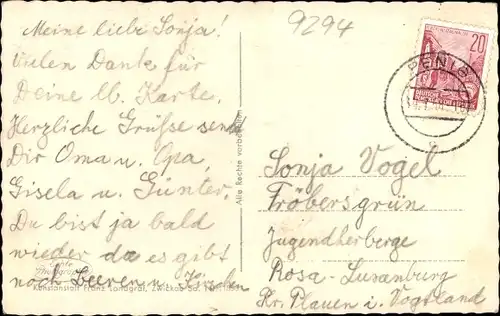 Meine liebe Sonja!
Vielen Dank für
Deine lb. Karte.
Herzliche Grüße send
Dir Oma u. Opa,
Gisela u. Günter.
Du bist ja bald
wieder da es gibt
noch Beeren u. Kirschen
Echte Photographie
Kunstanstalt Franz Landgraf, Zwickau Sa.
Alle Rechte vorbehalten
9294
20
PENIG
Sonja Vogel
Fröbersgrün
Jugendherberge
Rosa-Luxenburg
Kr. Plauen i. Vogtland